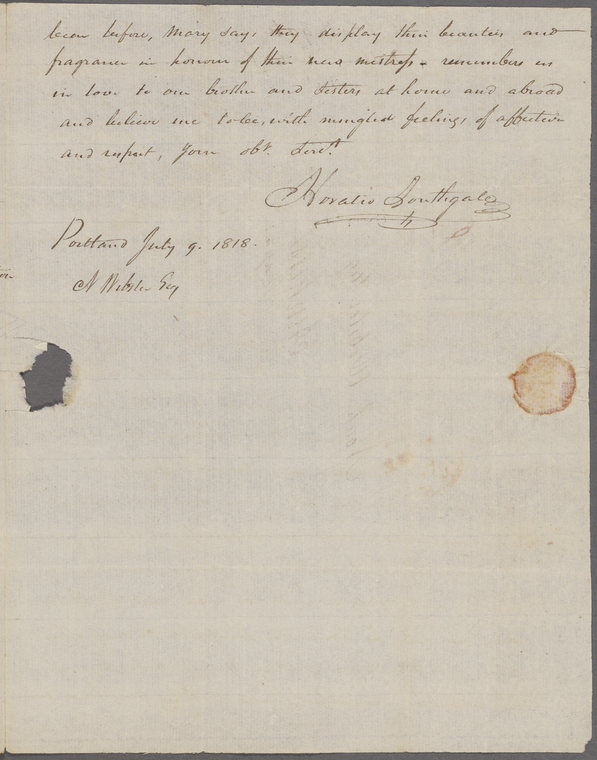 been before, Mary says they display their beauties and
fragrance in honour of their new mistress - remembers us
in love to our brother and sisters at home and abroad
and believe me to be, with mingled feelings of affection
and respect, Your obt. Servt.
Horatio Southgate
Portland July 9. 1818.
N Webster Esq